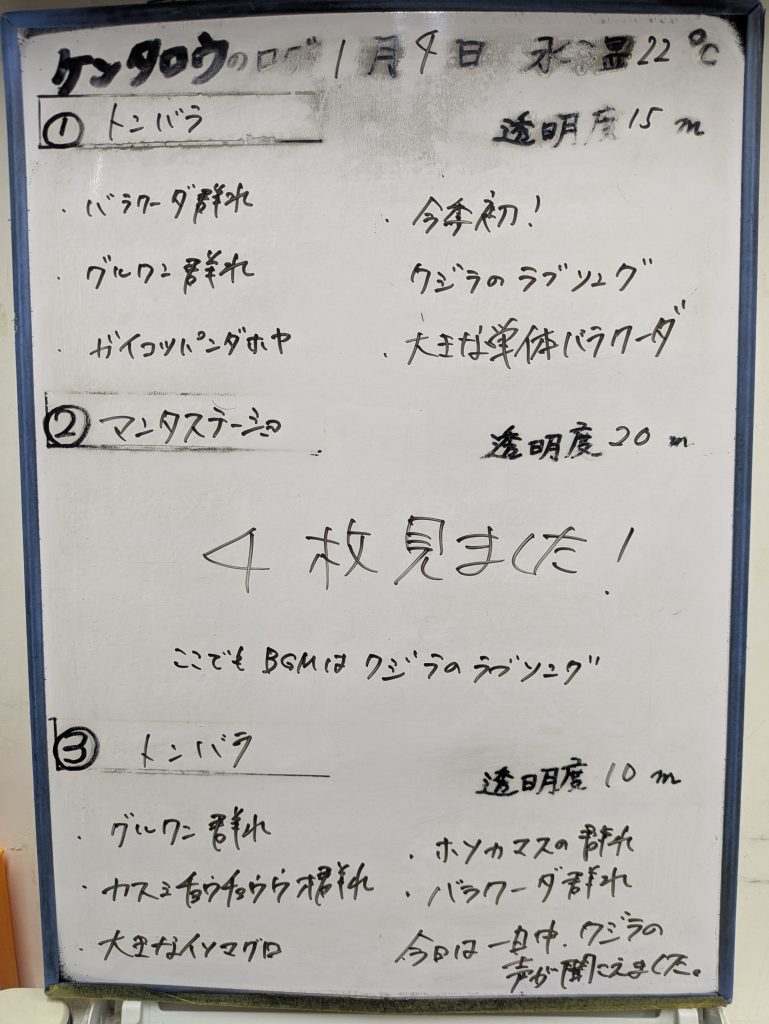 ケンタロウのログ 1月4日 水温22℃
① トンバラ 透明度15m
・バラクーダ群れ ・今季初!
・グルクン群れ クジラのラブソング
・ガイコツパンダホヤ ・大きな単体バラクーダ
② マンタステーション 透明度20m
4枚見ました!
ここでもBGMはクジラのラブソング
③ トンバラ 透明度10m
・グルクン群れ ・ホソカマスの群れ
・カスミチョウチョウウオ群れ ・バラクーダ群れ
・大きなイソマグロ 今日は一日中、クジラの
声が聞こえました。